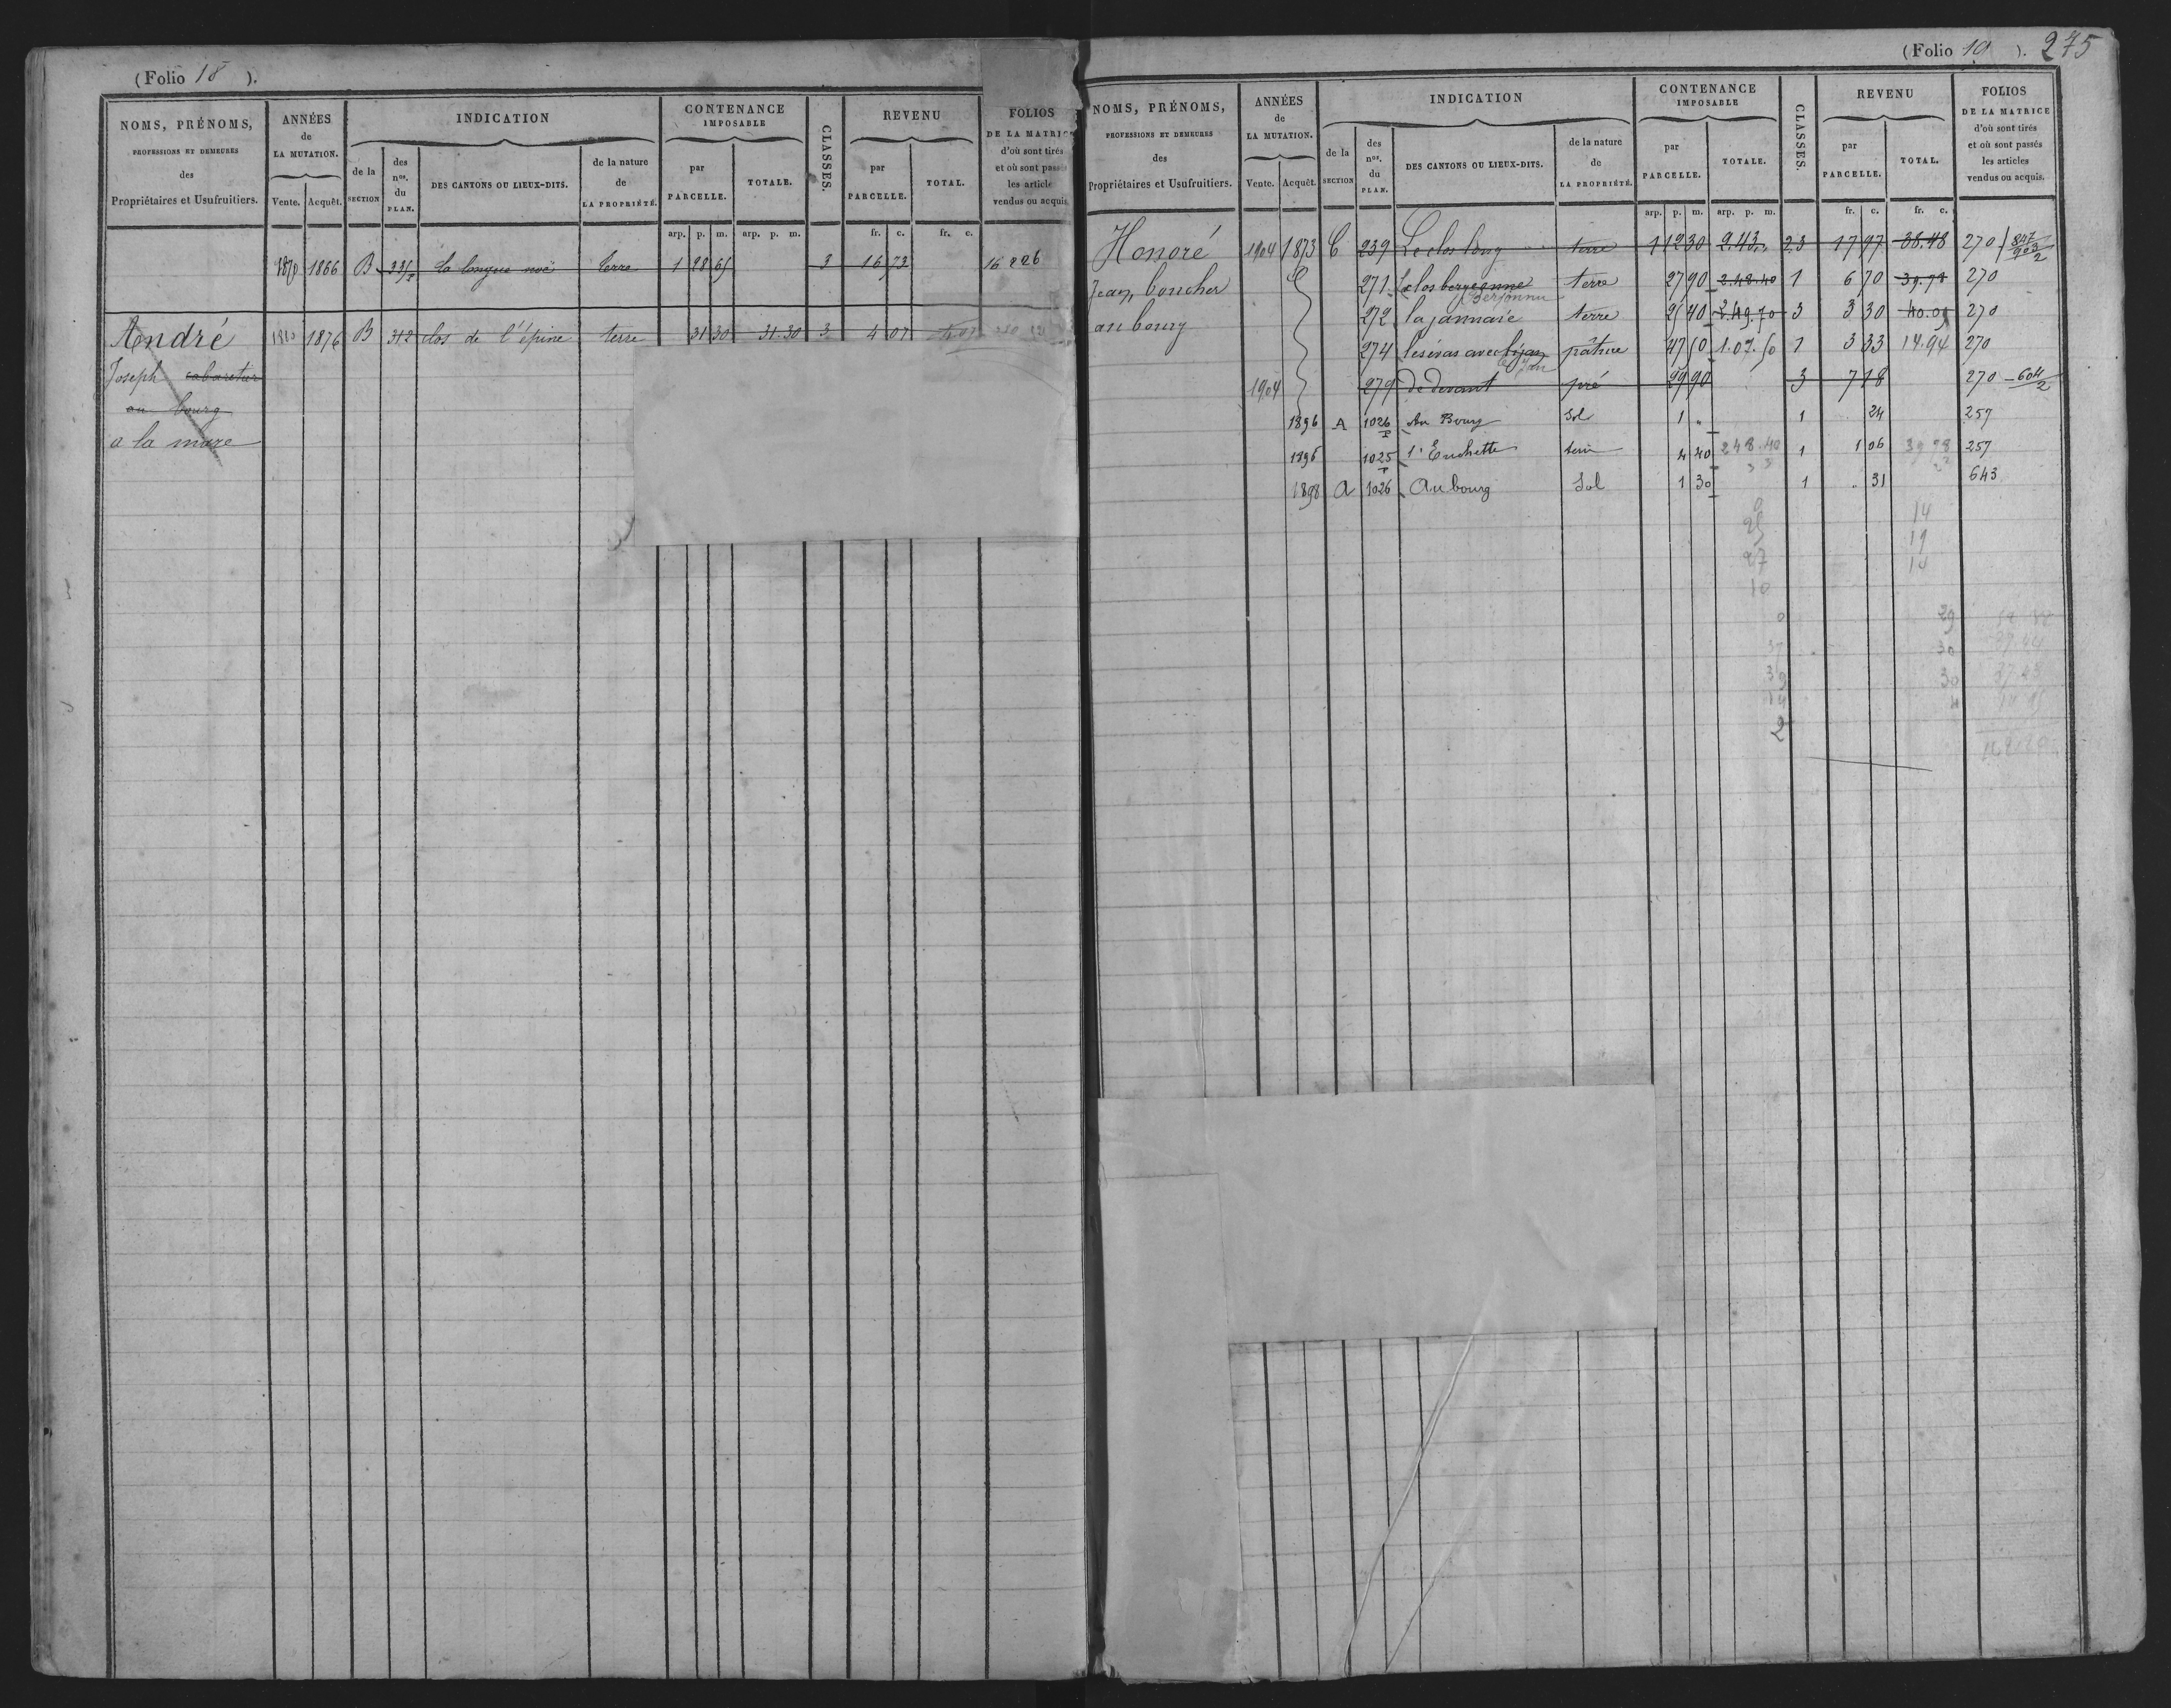 (Folio 18 ).
NOMS, PRÉNOMS,
PROFESSIONS ET DEMEURES
des
Propriétaires et Usufruitiers.
ANNÉES
de
LA MUTATION.
Vente. Acquêt.
INDICATION
de la
SECTION
des
nos.
du
PLAN.
DES CANTONS OU LIEUX-DITS.
de la nature
de
LA PROPRIÉTÉ.
CONTENANCE
IMPOSABLE
par
PARCELLE.
TOTALE.
CLASSES.
REVENU
par
PARCELLE.
TOTAL.
FOLIOS
DE LA MATRIC
d'où sont tirés
et où sont passés
les article
vendus ou acquis
arp. p. m. arp. p. m. fr. c. fr. c.
1870 1866 B la longue noë terre 1 28 65 3 16 73 16 226
André 1876 B 312 clos de l'épine terre 31 30 31.30 3 4 07
Joseph cabaretier
au bourg
a la mare
(Folio 19 ). 275
NOMS, PRÉNOMS,
PROFESSIONS ET DEMEURES
des
Propriétaires et Usufruitiers.
ANNÉES
de
LA MUTATION.
Vente. Acquêt.
INDICATION
de la
SECTION
des
nos.
du
PLAN.
DES CANTONS OU LIEUX-DITS.
de la nature
de
LA PROPRIÉTÉ.
CONTENANCE
IMPOSABLE
par
PARCELLE.
TOTALE.
CLASSES.
REVENU
par
PARCELLE.
TOTAL.
FOLIOS
DE LA MATRICE
d'où sont tirés
et où sont passés
les articles
vendus ou acquis.
arp. p. m. arp. p. m. fr. c. fr. c.
Honoré 1904 1873 C 239 Le clos long terre 1 12 30 2.43 2.3 17 97 38.48 270 847 903 2
Jean boucher 271 terre 27 90 2.48.40 1 6 70 39.78 270
au bourg 272 la jannaie terre 25 40 2.49.70 3 3 30 40.09 270
274 pâture 47 50 1.07.50 1 3 33 14.94 270
1904 279 de devant pré 99 90 3 7 18 270 604 2
1896 A 1026 Au Bourg Sol 1 1 24 257
1896 1025 4 40 248.40 1 1 06 39 78 257
1898 A 1026 Au bourg Sol 1 30 1 31 643